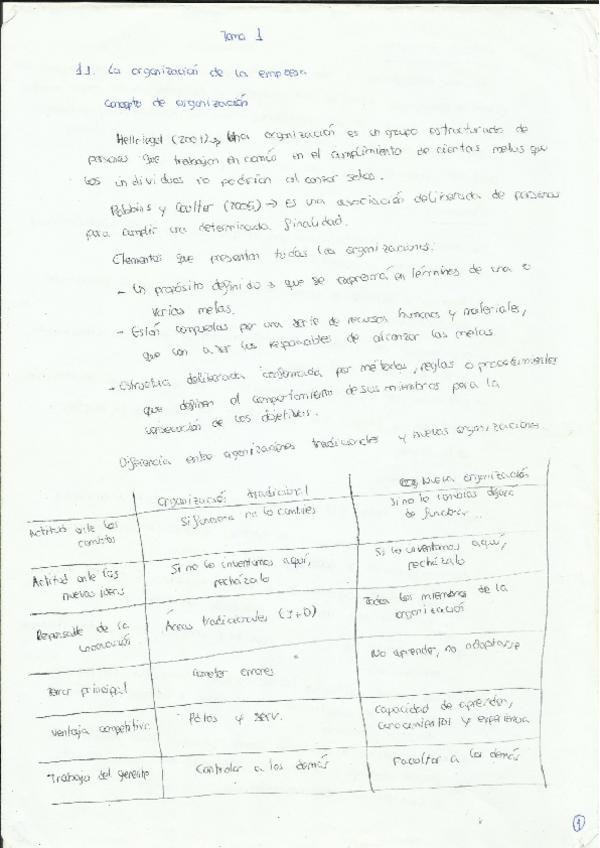 Tema 1
1.1. La organización de la empresa
Concepto de organización
Hellriegel (2002) → Una organización es un grupo estructurado de
personas que trabajan en común en el cumplimiento de ciertas metas que
los individuos no podrían alcanzar solos.
Robbins y Coulter (2005) → Es una asociación deliberada de personas
para cumplir una determinada finalidad.
Elementos que presentan todas las organizaciones:
- Un propósito definido y que se expresará en términos de una o
varias metas.
- Están compuestas por una serie de recursos humanos y materiales,
que van a ser los responsables de alcanzar las metas
- Estructura deliberada conformada por métodos, reglas o procedimientos
que definen el comportamiento de sus miembros para la
consecución de los objetivos.
Diferencia entre organizaciones tradicionales y nuevas organizaciones.
Organización tradicional
Nueva organización
Actitud ante los cambios
Si funciona no lo cambies
Si no lo cambias dejará
de funcionar
Actitud ante las
nuevas ideas
Si no lo inventamos aquí,
recházalo
Si lo inventamos aquí,
recházalo
Responsable de la
innovación
Áreas tradicionales (I+D)
Todos los miembros de la
organización
Error principal
Cometer errores
No aprender, no adaptarse
Ventaja competitiva
Pdtos y serv.
Capacidad de aprender,
conocimientos y experiencia
Trabajo del gerente
Controlar a los demás
Facultar a los demás
1